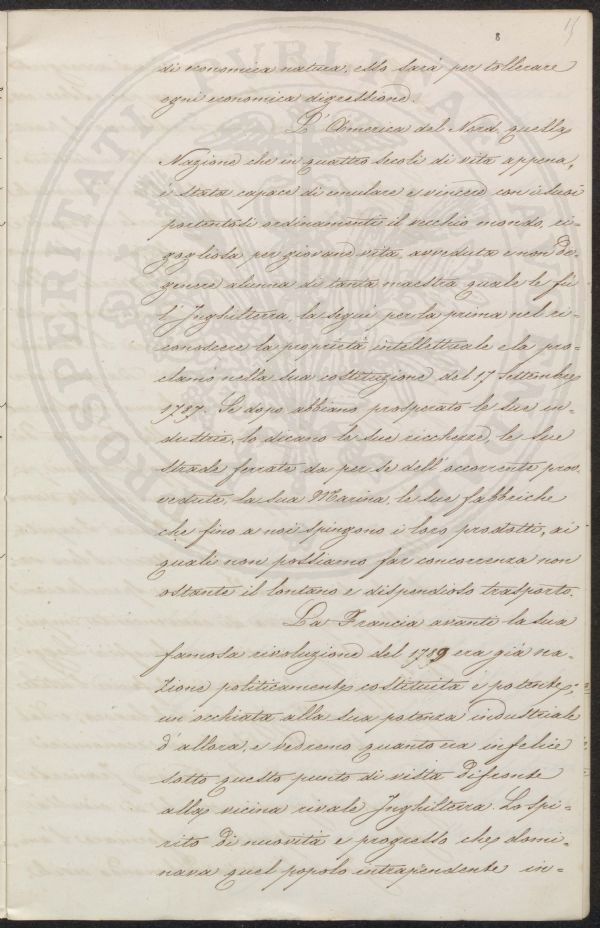 8
15
di economica natura, esso sarà per tollerare
ogni economica digressione.
L'America del Nord, quella
Nazione che in quattro secoli di vita appena,
è stata capace di emulare e vincere con i suoi
portentosi ordinamenti il vecchio mondo, ri-
gogliosa per giovane vita, avveduta e non de-
genere alunna di tanta maestra quale le fù
l'Inghilterra, la seguì per la prima nel ri-
conoscere la proprietà intellettuale e la pro-
clamò nella sua costituzione del 17 Settembre
1787. Se dopo abbiano prosperato le sue in-
dustrie, lo dicano le sue ricchezze, le sue
strade ferrate da per se dell'occorrente prov-
vedute, la sua Marina, le sue fabbriche
che fino a noi spingono i loro prodotti, ai
quali non possiamo far concorrenza non
ostante il lontano e dispendioso trasporto.
La Francia avanti la sua
famosa rivoluzione del 1789 era già na-
zione politicamente costituita e potente;
un occhiata alla sua potenza industriale
d'allora, e vedremo quanto era infelice
sotto questo punto di vista difronte
alla vicina rivale Inghilterra. Lo spi-
rito di nuovità e progresso che domi-
nava quel popolo intraprendente in-
PROSPERITATI PUBLICAE AUGENDAE